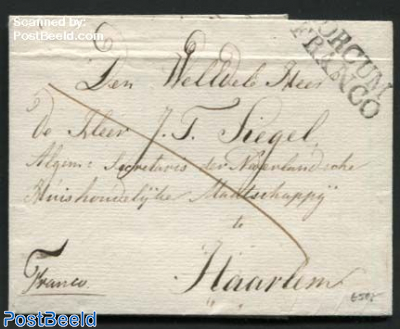 Scanned by
PostBeeld.com
GORCUM
FRANCO
Den Weledele Heer
De Heer J. T. Siegel
Algem: Secretaris der Nederlandsche
Huishoudelijke Maatschappij
te
Haarlem
Franco
PostBeeld